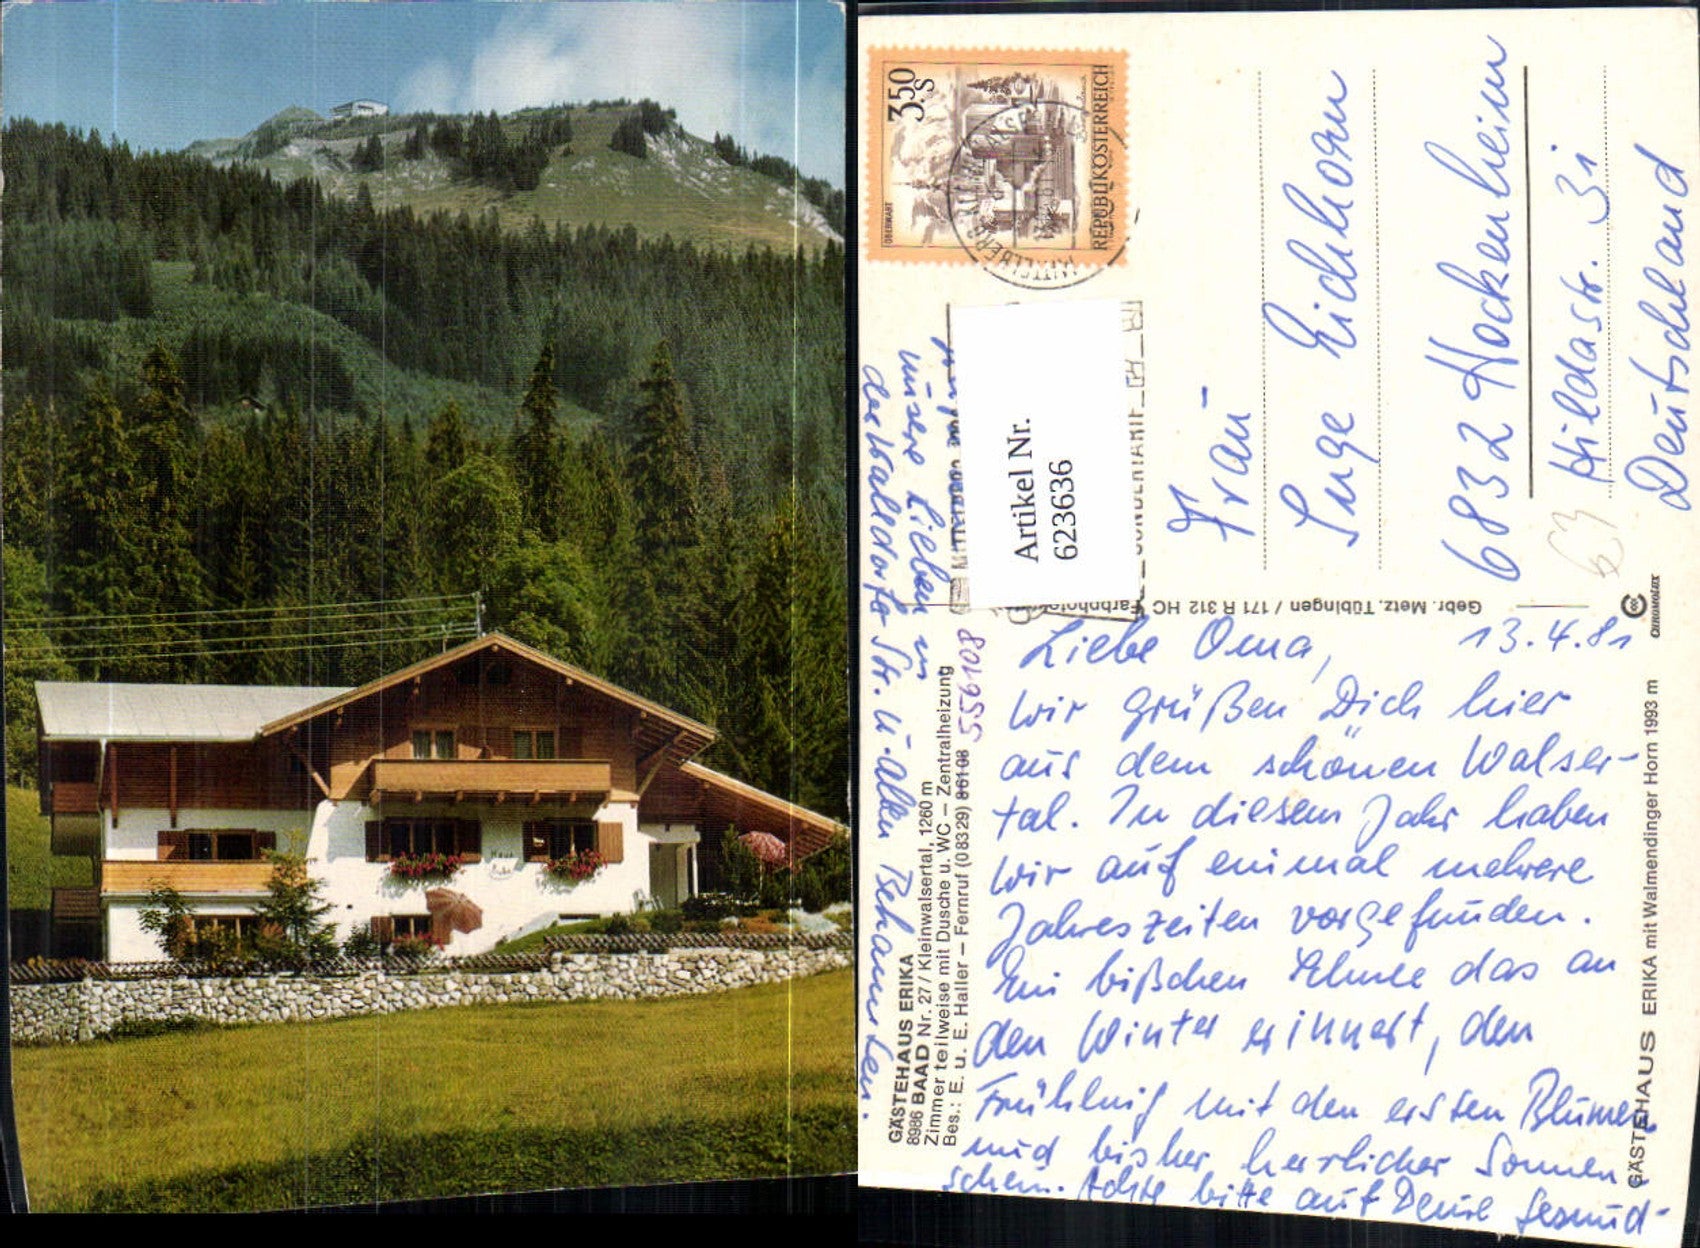 350
S
REPUBLIK ÖSTERREICH
OBERWART
Artikel Nr.
623636
Frau
Inge Eichhorn
6832 Hockenheim
Hildastr. 3i
Deutschland
63
CHROMOLUX
Gebr. Metz, Tübingen / 171 R 312 HC
13.4.81
Liebe Oma,
wir grüßen Dich hier
aus dem schönen Walser-
tal. In diesem Jahr haben
wir auf einmal mehrere
Jahreszeiten vorgefunden.
Ein bißchen Schnee das an
den Winter erinnert, den
Frühling mit den ersten Blumen
und bisher herrlicher Sonnen
schein. Achte bitte auf Deine Gesund-
unsere Lieben in
der Walldorfer Str. u. allen Bekannten.
GÄSTEHAUS ERIKA
8986 BAAD Nr. 27 / Kleinwalsertal, 1260 m
Zimmer teilweise mit Dusche u. WC – Zentralheizung
Bes.: E. u. E. Haller – Fernruf (08329) 86108 556108
GÄSTEHAUS ERIKA mit Walmendinger Horn 1993 m